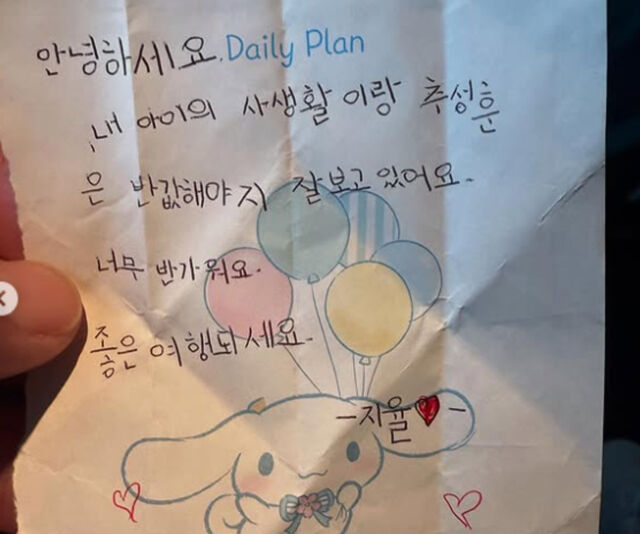 안녕하세요. Daily Plan
내 아이의 사생활 이랑 추성훈
은 반값해야지 잘보고 있어요.
너무 반가워요.
좋은 여행되세요.
-지율♥-